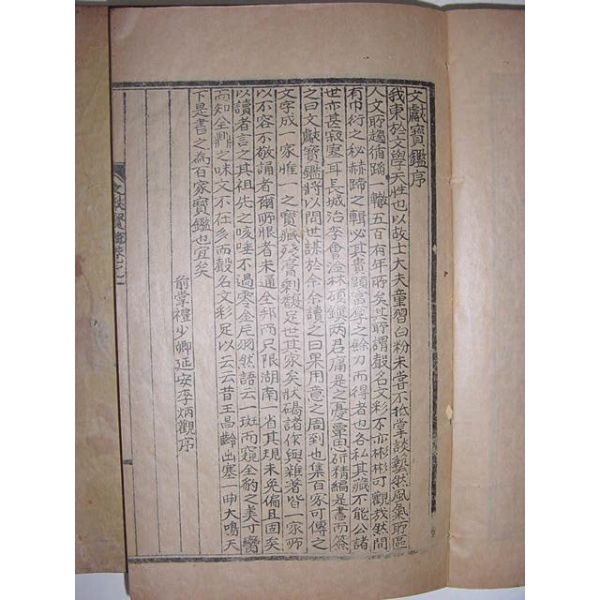 文獻寶鑑序
我東於文學天性也以故士大夫童習白粉未嘗不抵掌談藝然風氣所區
人文所趨循蹈一轍五百有年所矣其所謂聲名文彩不亦彬彬可觀哉然間
有巾衍之秘赫蹄之輯必其貴顯富厚之餘力而得者也各私其藏不能公諸
世亦甚寂寞耳長城治李會淦林碩鎭兩君痛是之憂靈思研精編是書而簽
之曰文獻寶鑑將以問世謀於余余讀之曰果用意之周到也集百家可傳之
文字成一家惟一之寶藏殘膏剩馥足世其家矣狀碣諸作與雜著皆一家所
以不容不敬誦者爾所恨者未通全邦而只限湖南一省其規未免偏且固矣
以讀者言之其祖先之咳唾不過零金片羽然語云一斑而窺全豹之美寸臠
而知全鼎之味文不在多而聲名文彩足以云云昔王昌齡出塞一曲大鳴天
下是書之為百家寶鑑也宜矣
前掌禮少卿延安李炳觀序
文獻寶鑑卷之一